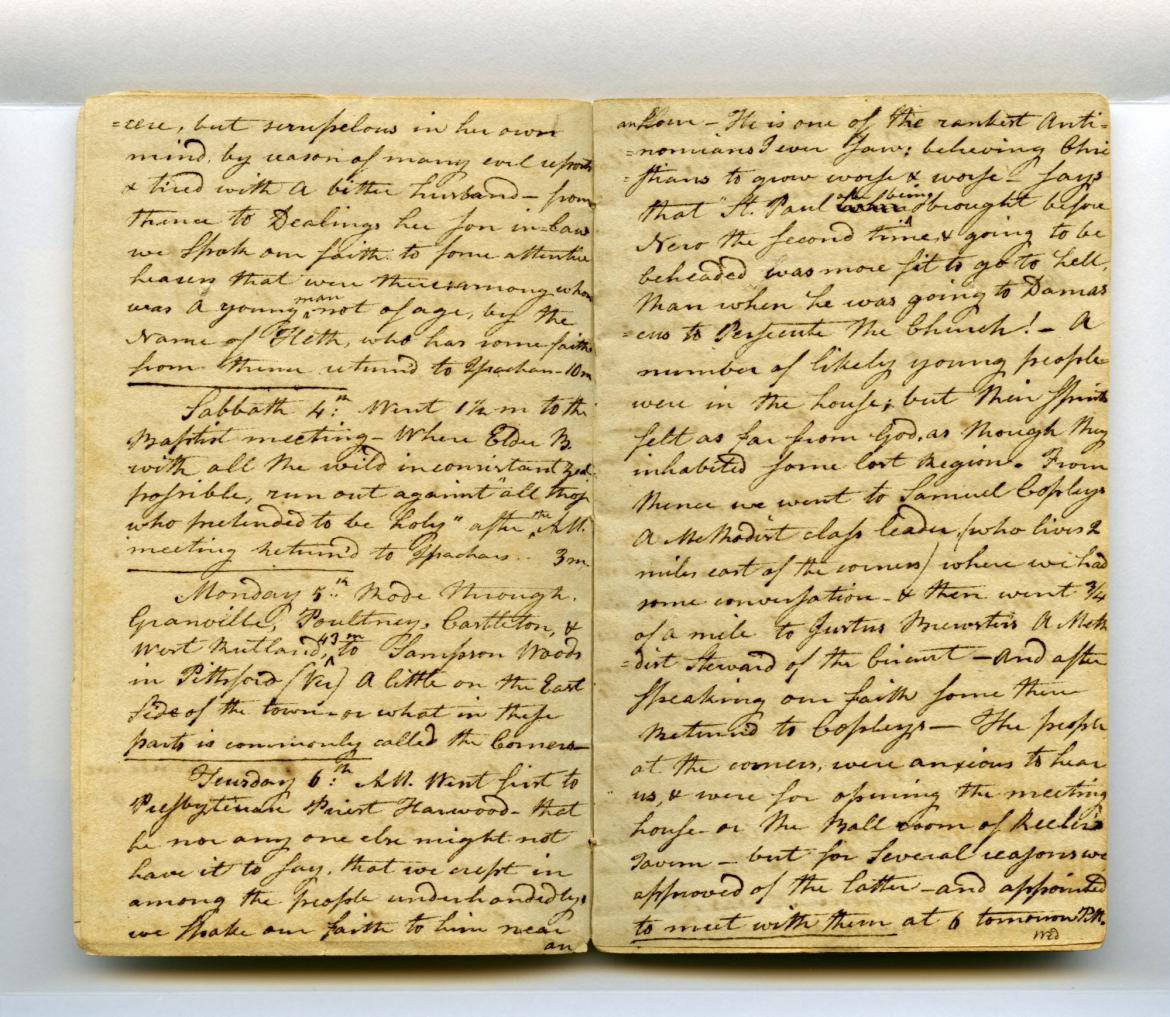 =cere, but scrupelous in her own
mind, by reason of many evil reports
& tired with a bitter husband – from
thence to Dealings her son in-law
we Spoke our faith to some attentive
hearers that were there; among whom
was A young man not of age, by the
Name of Heth, who has some faith
from thence returned to – 10m
Sabbath 4th Went 1½ m to the
Baptist meeting – Where Elder B.
with all the wild inconsistant Zeal
possible, run out against "all those
who pretended to be holy" after the A.M.
meeting returnd to 3m
Monday 5th Rode through
Granville, Poultney, Castleton, &
West Rutland, 43 m to Sampson Woods
in Pittsford (Ver) A little on the East
Side of the town – or what in these
parts is commonly called the Corners –
Teusday 6th A.M. Went first to
Presbyterian Priest Harwood – that
he nor any one else might not
have it to say, that we crept in
among the people underhandedly,
we spoke our faith to him near
an
an hour – He is one of the rankest Anti=
=nomians I ever Saw; believing Chri
=stians to grow worse & worse – Says
that "St. Paul after being brought before
Nero the Second time, & going to be
beheaded was more fit to go to hell,
than when he was going to Damas
=cus to Persecute the Church! – A
number of likely young people
were in the house; but their Spirits
felt as far from God, as though they
inhabited some lost Region. From
thence we went to Samuel Copleys
A Methodist class leader, (who lives 2
miles east of the corners) where we had
some conversation – & then went ¾
of a mile to Justus Brewsters A Meth
=dist Steward of the Circuit – And after
Speaking our faith some there
Returned to Copleys – The people
at the corners, were anxious to hear
us, & were for opening the meeting
house – or the Ball room of Keelers
Tavern – but for Several reasons we
approved of the latter – and appointed
to meet with them at 6 tomorrow P.M.
Wed